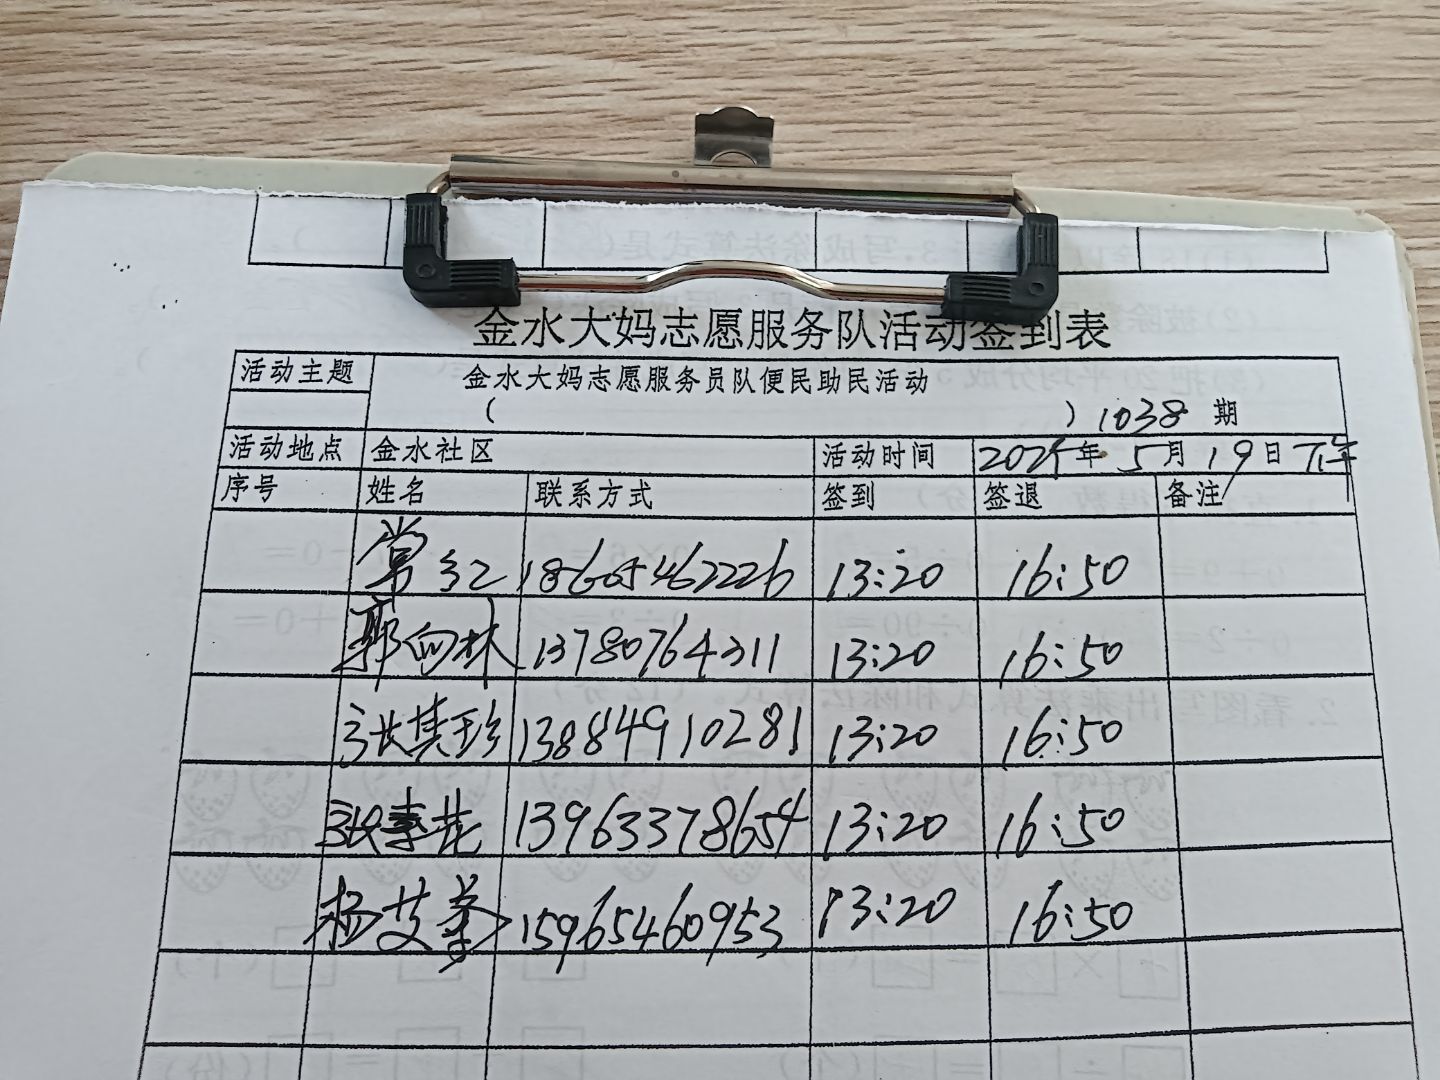 金水大妈志愿服务队活动签到表
活动主题 金水大妈志愿服务员队便民助民活动
( ) 1038 期
活动地点 金水社区 活动时间 2025年 5月 19日 下午
序号 姓名 联系方式 签到 签退 备注
常红 18665462226 13:20 16:50
郭向林 13780764311 13:20 16:50
张其珍 13884910281 13:20 16:50
张素花 13963378654 13:20 16:50
杨艾 15965460953 13:20 16:50